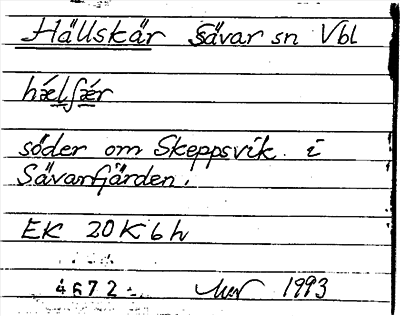 Hällskär Sävar sn Vbl
hǽlʃǽr
söder om Skeppsvik i
Sävarfjärden.
EK 20K6h
4672 1993